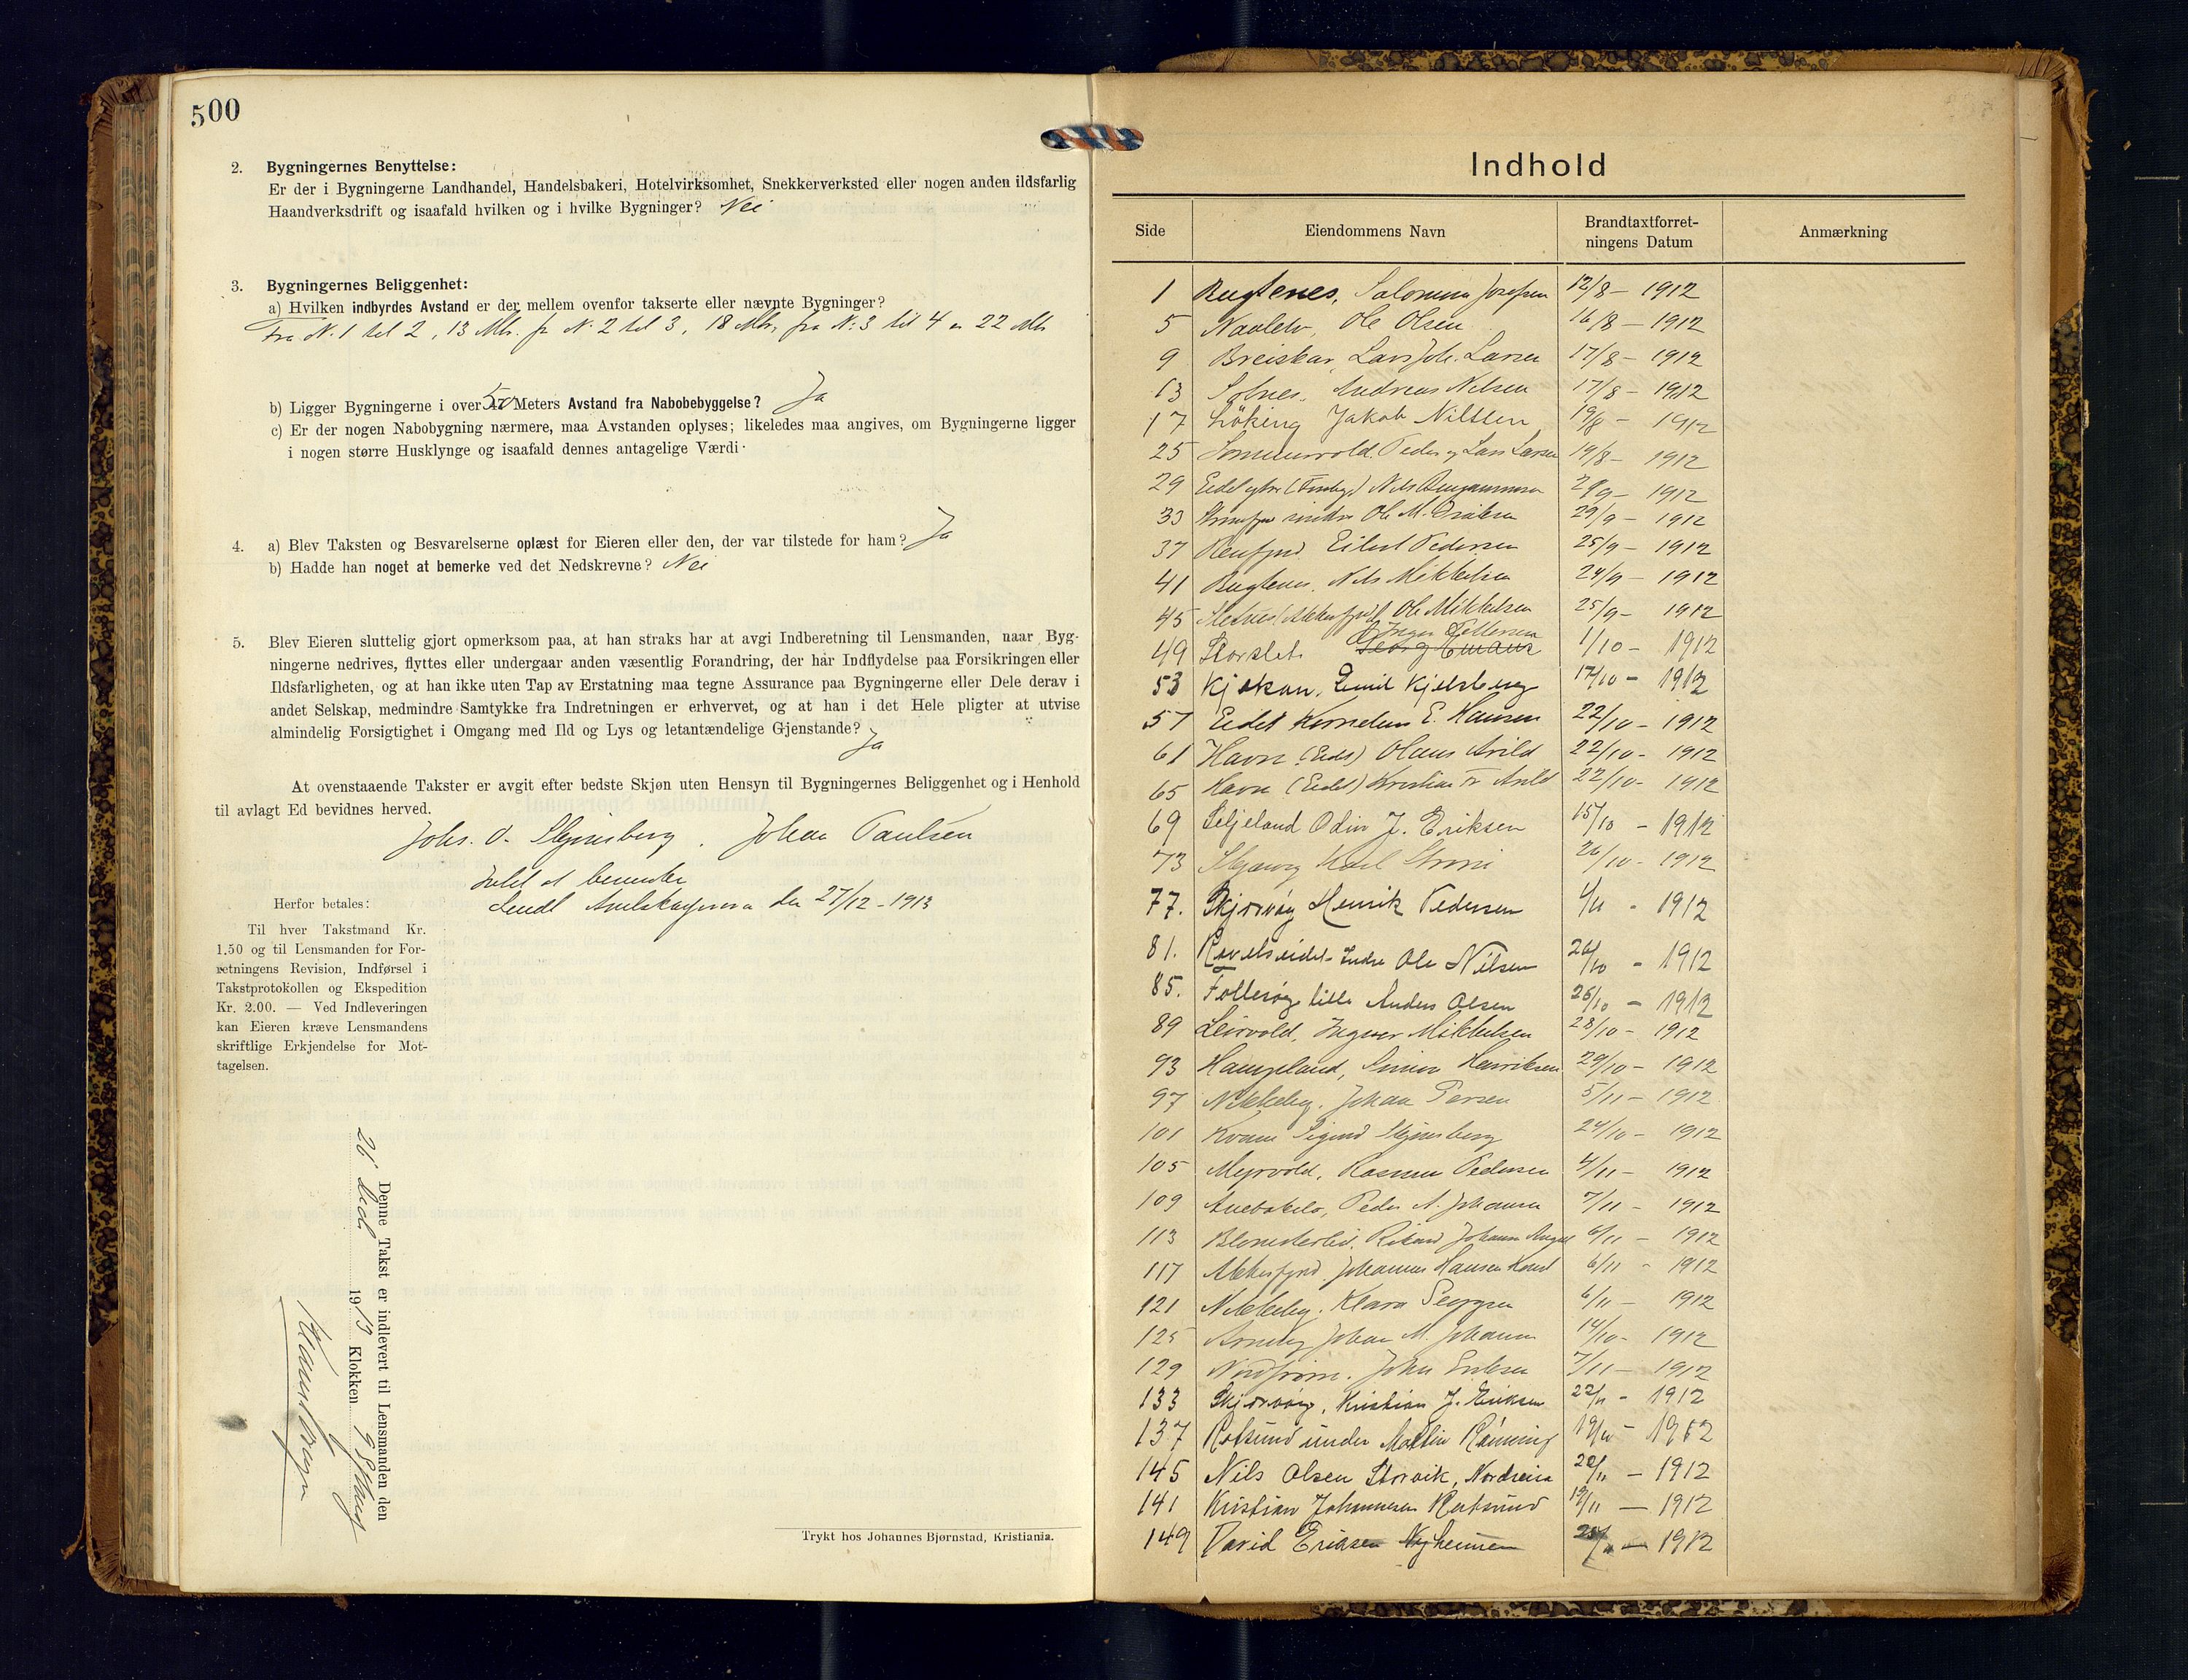 500
2. Bygningernes Benyttelse:
Er der i Bygningerne Landhandel, Handelsbakeri, Hotelvirksomhet, Snekkerverksted eller nogen anden ildsfarlig
Haandverksdrift og isaafald hvilken og i hvilke Bygninger? Nei
3. Bygningernes Beliggenhet:
a) Hvilken indbyrdes Avstand er der mellem ovenfor takserte eller nævnte Bygninger?
Fra N. 1 til 2, 13 Mtr. fr N. 2 til 3, 18 Mtr, fra N: 3 til 4 22 Mtr
b) Ligger Bygningerne i over 50 Meters Avstand fra Nabobebyggelse? Ja
c) Er der nogen Nabobygning nærmere, maa Avstanden oplyses; likeledes maa angives, om Bygningerne ligger
i nogen større Husklynge og isaafald dennes antagelige Værdi.
4. a) Blev Taksten og Besvarelserne oplæst for Eieren eller den, der var tilstede for ham? Ja
b) Hadde han noget at bemerke ved det Nedskrevne? Nei
5. Blev Eieren sluttelig gjort opmerksom paa, at han straks har at avgi Indberetning til Lensmanden, naar Byg-
ningerne nedrives, flyttes eller undergaar anden væsentlig Forandring, der har Indflydelse paa Forsikringen eller
Ildsfarligheten, og at han ikke uten Tap av Erstatning maa tegne Assurance paa Bygningerne eller Dele derav i
andet Selskap, medmindre Samtykke fra Indretningen er erhvervet, og at han i det Hele pligter at utvise
almindelig Forsigtighet i Omgang med Ild og Lys og letantændelige Gjenstande? Ja
At ovenstaaende Takster er avgit efter bedste Skjøn uten Hensyn til Bygningernes Beliggenhet og i Henhold
til avlagt Ed bevidnes herved.
Johs. O. Skjinsberg, Johan Paulsen
Intet at bemerke
27/12 - 1913
Herfor betales:
Til hver Takstmand Kr.
1.50 og til Lensmanden for For-
retningens Revision, Indførsel i
Takstprotokollen og Ekspedition
Kr. 2.00. — Ved Indleveringen
kan Eieren kræve Lensmandens
skriftlige Erkjendelse for Mot-
tagelsen.
Denne Takst er indlevert til Lensmanden den
1913 Klokken 9
Trykt hos Johannes Bjørnstad, Kristiania.
Indhold
Side Eiendommens Navn Brandtaxtforret-ningens Datum Anmærkning
1 Bugtenes, Josefsen 12/8 - 1912
5 Ole Olsen 16/8 - 1912
9 Breiskar, Lars Joh. Larsen 17/8 - 1912
13 Andreas Nilsen 17/8 - 1912
17 Løking Jakob Nilsen 19/8 - 1912
25 Sommervold. Peder og Lars Larsen 19/8 - 1912
29 Nils Benjaminsen 1912
33 indre Ole M. 29/9 - 1912
37 Eilert Pedersen 25/9 - 1912
41 Bugtenes, Nils Mikkelsen 24/9 - 1912
45 Ole Mikkelsen 25/9 - 1912
49 Storslet. Inger Pettersen 1/10 - 1912
53 Kjækan, Emil Kjelsberg 17/10 - 1912
57 Eidet Kornelius E. Hansen 22/10 - 1912
61 Havn (Eidet) Olaus Arild 22/10 - 1912
65 Havn (Eidet) Kristian Arild 22/10 - 1912
69 Seljeland Odin J. Eriksen 15/10 - 1912
73 Skjærvøy Karl 26/10 - 1912
77. Skjærvøy Henrik Pedersen 1912
81. Ravelseidet Indre Ole Nilsen 26/10 - 1912
85. Follesøy lille Anders Olsen 26/10 - 1912
89 Leirvold, Ingvar Mikkelsen 28/10 - 1912
93 Haugeland, Simon Henriksen 29/10 - 1912
97 Nikkeby. Johan Persen 5/11 - 1912
101 Kvam Sigurd Skjinsberg 24/10 - 1912
105 Myrvold, Rasmus Pedersen 4/11 - 1912
109 Peder A. Johansen 7/11 - 1912
113 Rikard Johansen 6/11 - 1912
117 Akkarfjord. Johannes Hansen 6/11 - 1912
121 Nikkeby. Klara 6/11 - 1912
125 Johan M. Johansen 14/10 - 1912
129 Johan Eriksen 7/11 - 1912
133 Skjærvøy, Kristian J. Eriksen 22/11 - 1912
137 Rotsund indre Martin Rönning 19/11 - 1912
145 Nils Olsen Storvik, Nordreisa 20/11 - 1912
141 Kristian Johannesen Rotsund 19/11 - 1912
149 David Eriksen 1912